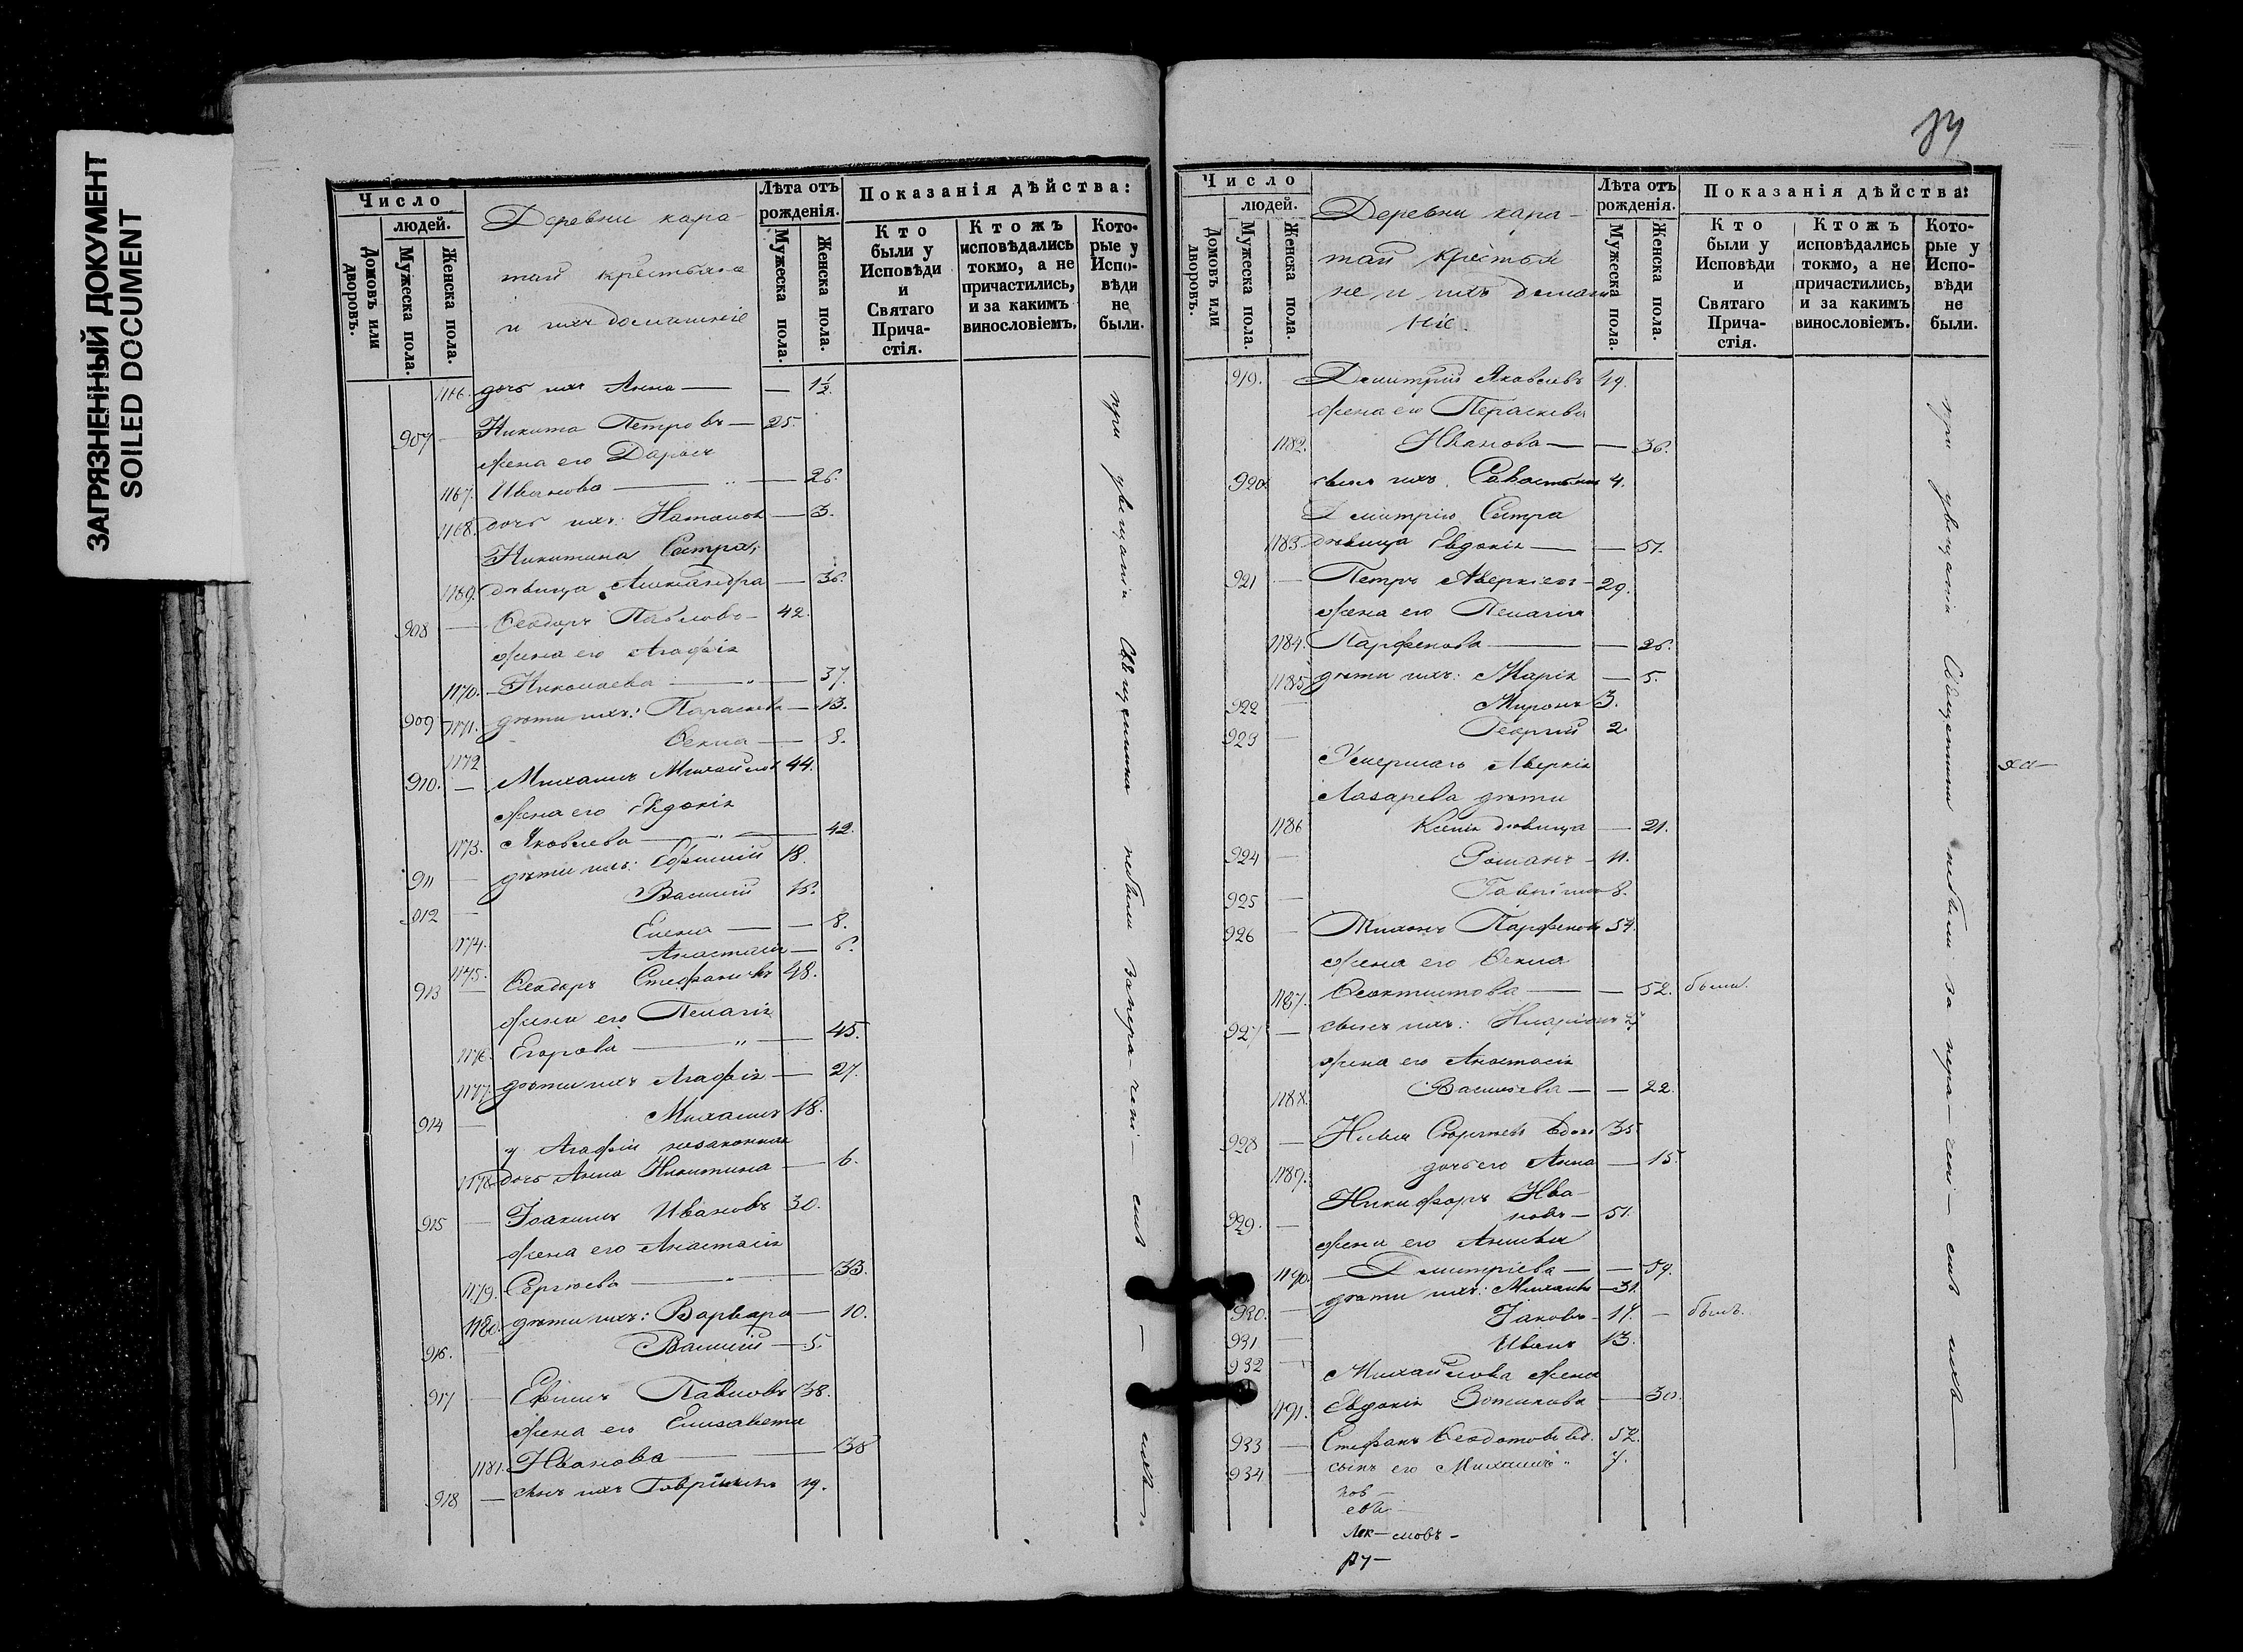 ЗАГРЯЗНЕННЫЙ ДОКУМЕНТ
SOILED DOCUMENT
Число
людей.
Домовъ или дворовъ.
Мужеска пола.
Женска пола.
Деревни кара-
тай крестьяне
и ихъ домашніе
Лѣта отъ рожденія.
Мужеска пола.
Женска пола.
Показанія дѣйства:
Кто были у Исповѣди и Святаго Прича-стія.
Ктожъ исповѣдались токмо, а не причастились, и за какимъ винословіемъ.
Кото-рые у Испо-вѣди не были.
1166. дочь ихъ Анна — — 1½
907 — Никита Петровъ — 25.
жена его Дарья
1167. Иванова — — 26.
1168. дочь ихъ: Наталія — 3.
Никитина Сестра,
1169. дѣвица Александра — 36.
908 — Ѳеодоръ Павловъ — 42.
жена его Агафія
1170. Николаева — — 37.
909 1171. дѣти ихъ: Параскева — 13.
1172 Ѳекла — 8.
910. — Михаилъ Михайловъ 44.
жена его Евдокія
1173. Яковлева — — 42.
911 — дѣти ихъ: Ефимій 18.
912 — Василій 16.
1174. Елена — — 8.
1175. Анастасія — 6.
913 — Ѳеодоръ Стефановъ 48.
жена его Пелагія
1176. Егорова — — 45.
1177. дѣти ихъ Агафія — 27.
914 — Михаилъ 18.
у Агафіи незаконная
1178 дочь Анна Никитина — 6.
915 — Іоакимъ Ивановъ 30.
жена его Анастасія
1179. Сергѣева — — 33.
1180. дѣти ихъ: Варвара — 10.
916. — Василій — 5.
917 — Ефимъ Павловъ 38.
жена его Елисавета
1181. Иванова — — 38
918 — сынъ ихъ Гавріилъ 19.
при увѣщаніи Священника небыли за нера-чені-емъ — ихъ —
Число
людей.
Домовъ или дворовъ.
Мужеска пола.
Женска пола.
Деревни кара-
тай крестья
не и ихъ домаш
ніе
Лѣта отъ рожденія.
Мужеска пола.
Женска пола.
Показанія дѣйства:
Кто были у Исповѣди и Святаго Прича-стія.
Ктожъ исповѣдались токмо, а не причастились, и за какимъ винословіемъ.
Кото-рые у Испо-вѣди не были.
919. — Дмитрій Яковлевъ 49.
жена его Пераскева
1182. Иванова — — 36.
920. сынъ ихъ Савастьянъ 4.
Дмитрію Сестра
1183. дѣвица Евдокія — — 51.
921 — Петръ Аверкіевъ — 29.
жена его Пелагія
1184. Парфенова — — 26.
1185 дѣти ихъ: Марія — 5.
922 — Миронъ 3.
923 — Георгій 2
Умершаго Аверкія
Лазарева дѣти
1186 Ксенія дѣвица — 21.
924 — Романъ — 11.
925 — Гавріилъ 8.
926 — Тихонъ Парфеновъ 54.
жена его Ѳекла
1187. Ѳеоктистова — — 52. была.
927 — сынъ ихъ: Иларіонъ
жена его Анастасія
1188. Васильева — — 22.
928 — Илья Сергѣевъ вдов 35
1189. дочь его Анна — 15.
929. — Никифоръ Ива-
новъ — 51.
жена его Анисья
1190. Дмитріева — — 59.
930. — дѣти ихъ: Михаилъ — 31.
931 — Іаковъ — 17. — былъ.
932 — Иванъ 13.
Михайлова жена
1191. Евдокія Зотикова — 30.
933 — Стефанъ Ѳеодотовъ вд. 52.
934 — сынъ его Михаилъ " 7.
нов —
ева —
Лок — мовъ —
ру —
при увѣщаніи Священника небыли за нера-чені-емъ ихъ —
ха —